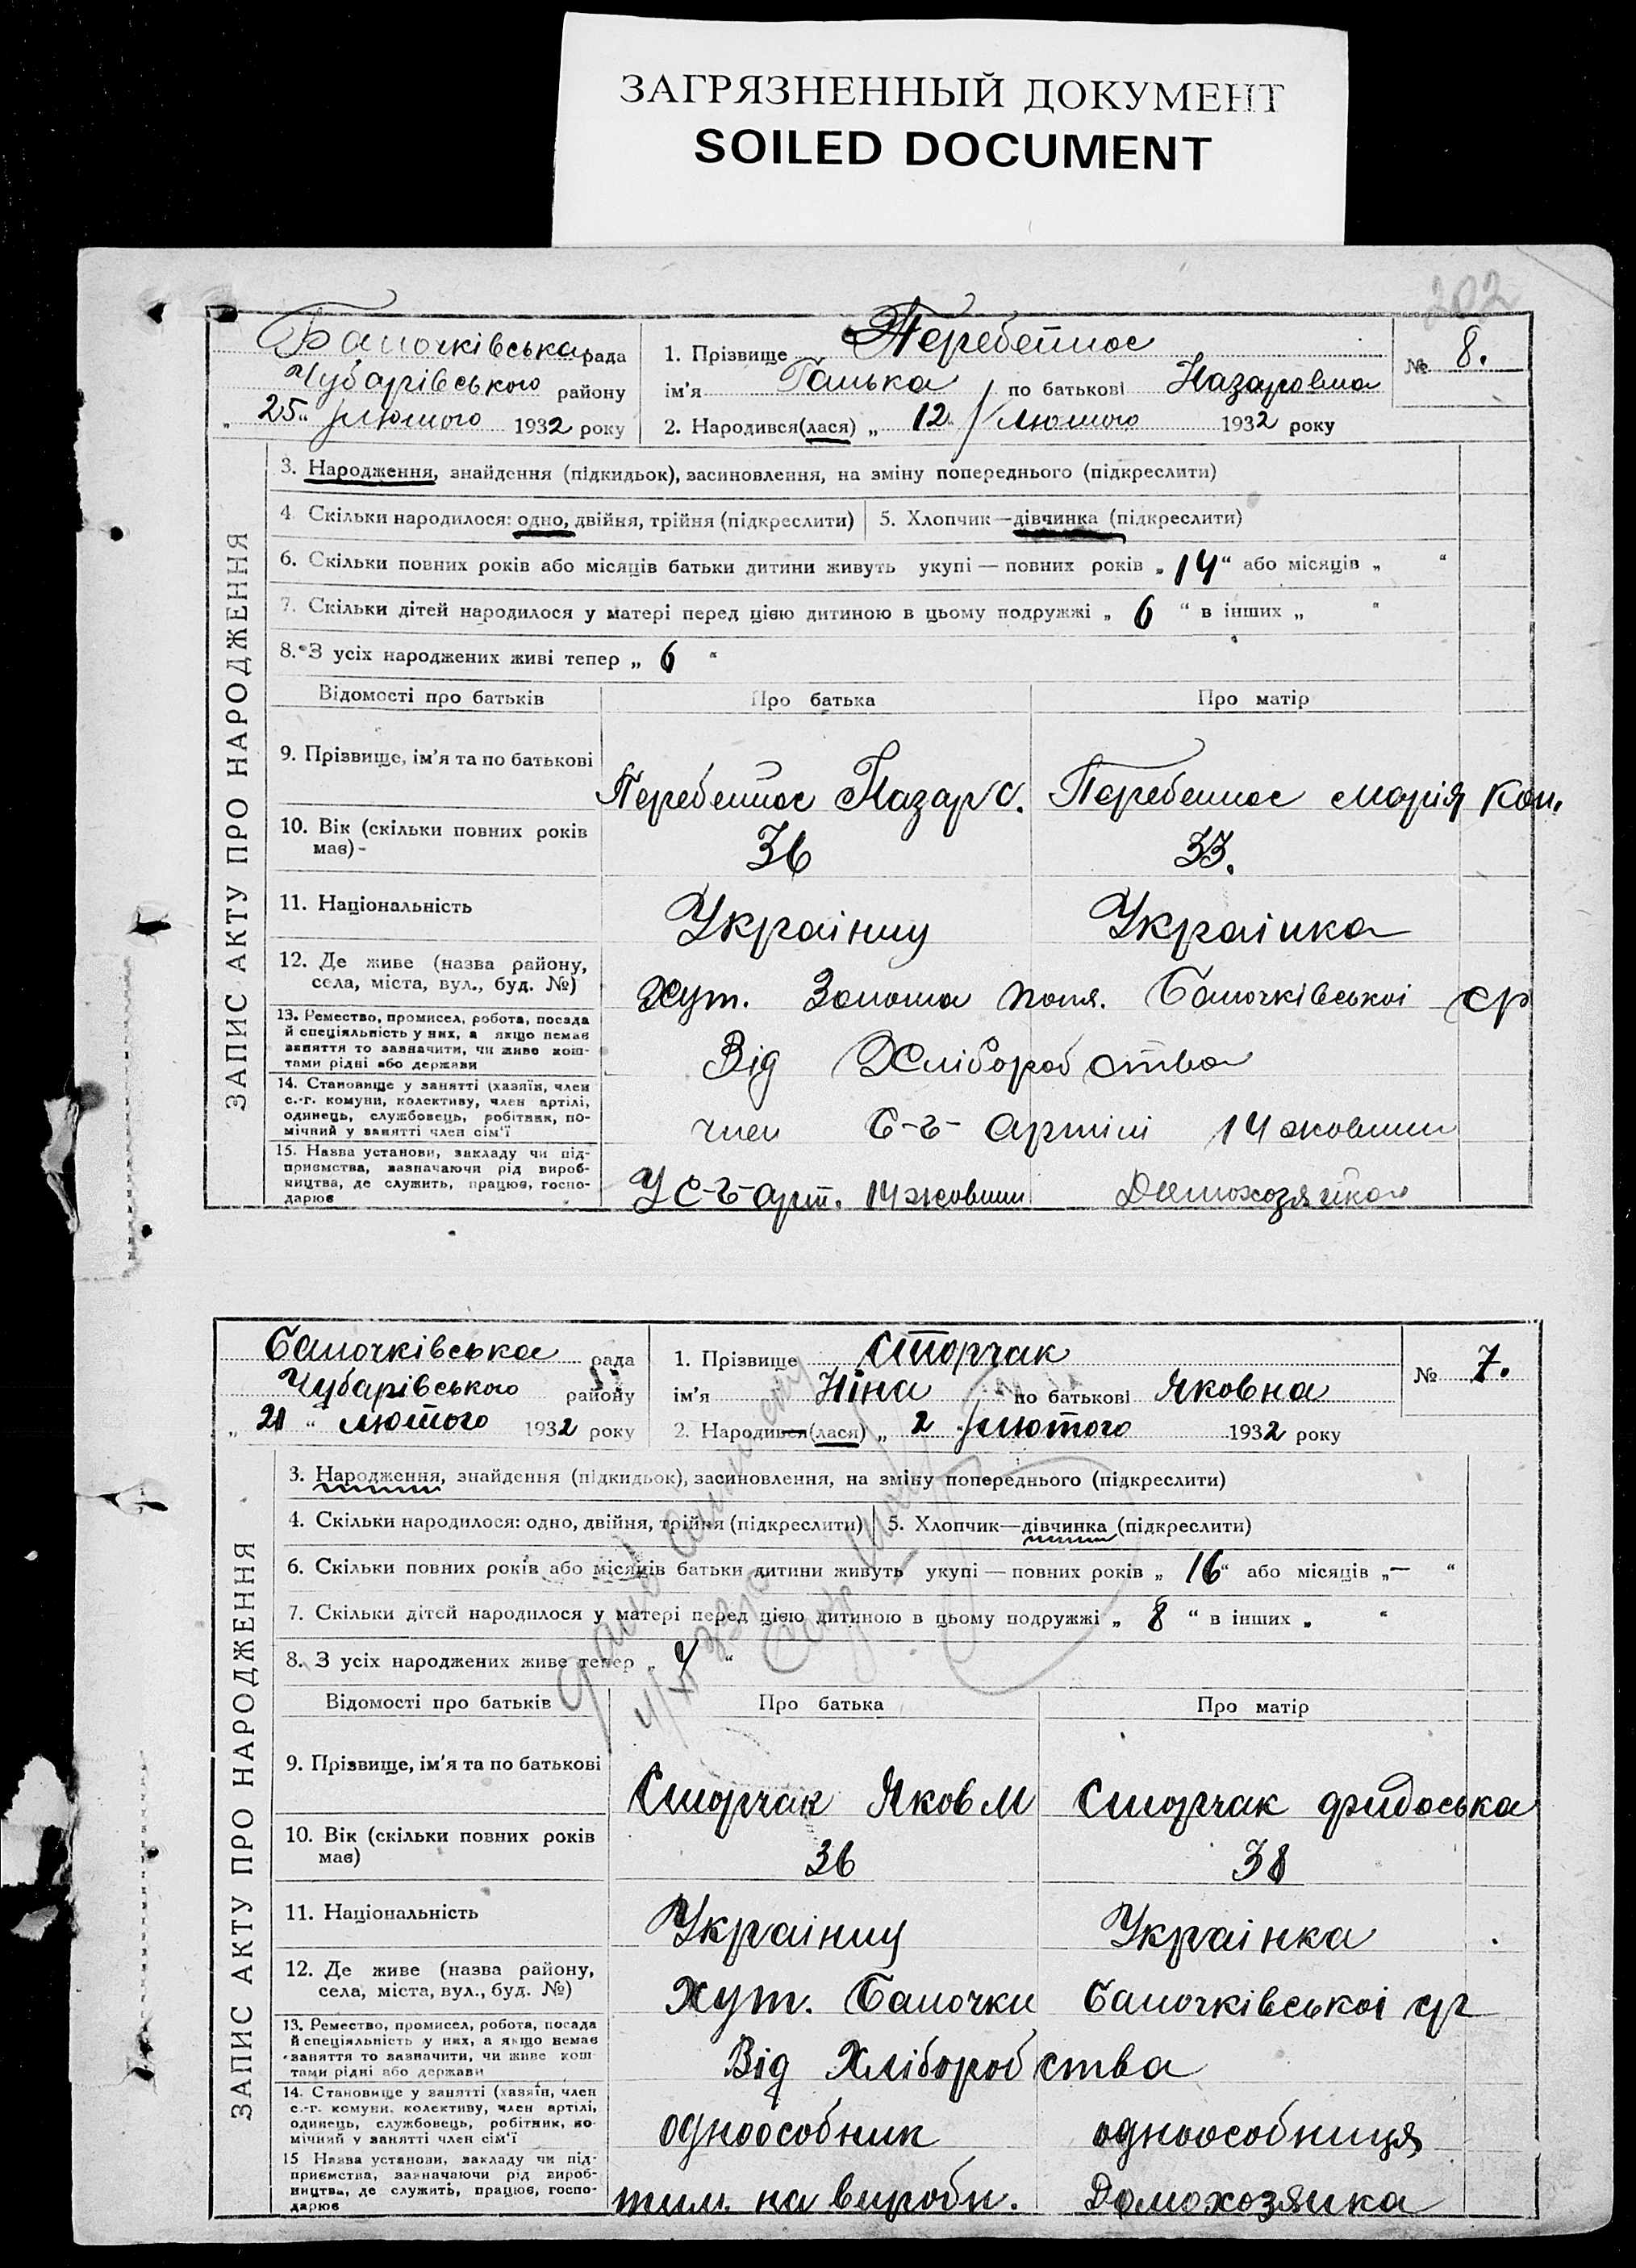 ЗАГРЯЗНЕННЫЙ ДОКУМЕНТ
SOILED DOCUMENT
202
Балочківська рада
Чубарівського району
„25“ лютого 1932 року
1. Прізвище Перебейнос
ім'я Ганька по батькові Назаровна
2. Народився(лася) „12“ лютого 1932 року
№ 8.
ЗАПИС АКТУ ПРО НАРОДЖЕННЯ
3. Народження, знайдення (підкидьок), засиновлення, на зміну попереднього (підкреслити)
4. Скільки народилося: одно, двійня, трійня (підкреслити) 5. Хлопчик—дівчинка (підкреслити)
6. Скільки повних років або місяців батьки дитини живуть укупі — повних років „14“ або місяців „ “
7. Скільки дітей народилося у матері перед цією дитиною в цьому подружжі „6“ в інших „ “
8. З усіх народжених живі тепер „6“
Відомості про батьків Про батька Про матір
9. Прізвище, ім'я та по батькові
Перебейнос Назар С. Перебейнос Марія Кон.
10. Вік (скільки повних років
має)-
36 33.
11. Національність
Українец Українка
12. Де живе (назва району,
села, міста, вул., буд. №)
Хут. Золота поля. Балочківської ср
13. Ремество, промисел, робота, посада
й спеціяльність у них, а якщо немає
заняття то зазначити, чи живе кош-
тами рідні або держави
Від Хліборобства
14. Становище у занятті (хазяїн, член
с.-г. комуни, колективу, член артілі,
одинець, службовець, робітник, по-
мічний у занятті член сім'ї
член С-г- артілі 14 жовтин
15. Назва установи, закладу чи під-
приємства, зазначаючи рід вироб-
ництва, де служить, працює, госпо-
дарює
У С-г-арт. 14 жовтин Домохозяйка
Балочківська рада
Чубарівського району
„21“ лютого 1932 року
1. Прізвище Сторчак
ім'я Ніна по батькові Яковна
2. Народився(лася) „2 лютого 1932 року
№ 7.
ЗАПИС АКТУ ПРО НАРОДЖЕННЯ
3. Народження, знайдення (підкидьок), засиновлення, на зміну попереднього (підкреслити)
4. Скільки народилося: одно, двійня, трійня (підкреслити) 5. Хлопчик—дівчинка (підкреслити)
6. Скільки повних років або місяців батьки дитини живуть укупі — повних років „16“ або місяців „—“
7. Скільки дітей народилося у матері перед цією дитиною в цьому подружжі „8“ в інших „ “
8. З усіх народжених живе тепер „4“
Відомості про батьків Про батька Про матір
9. Прізвище, ім'я та по батькові
Сторчак Яков М Сторчак Фидоська
10. Вік (скільки повних років
має)
36 38
11. Національність
Українец Українка
12. Де живе (назва району,
села, міста, вул., буд. №)
Хут. Балочки Балочківської ср
13. Ремество, промисел, робота, посада
й спеціяльність у них, а якщо немає
заняття то зазначити, чи живе кош-
тами рідні або держави
Від Хліборобства
14. Становище у занятті (хазяїн, член
с.-г. комуни, колективу, член артілі,
одинець, службовець, робітник, по-
мічний у занятті член сім'ї
одноособник одноособниця
15 Назва установи, закладу чи під-
приємства, зазначаючи рід вироб-
ництва, де служить, працює, госпо-
дарює
тим. на виробн. Домохозяйка